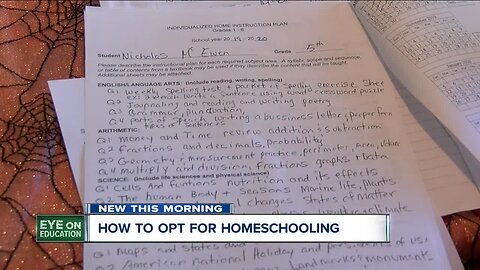 INDIVIDUALIZED HOME INSTRUCTION PLAN
Grades 1 - 6
School year 2019 - 2020
Student Nicholas McEwen Grade 5th
Please describe the instructional plan for each required subject area. A syllabus, scope and sequence,
or table of contents from a textbook may be used if they describe the content that will be taught.
Additional sheets may be attached.
ENGLISH/LANGUAGE ARTS: (include reading, writing, spelling)
Q1 Weekly Spelling test & packet of spelling exercise sheet
write a sentence using words crossword puzzle
Q2 Journaling and reading and writing poetry
Q3 Grammar, punctuation
Q4 parts of speech writing a bussiness letter & proper form
types of sentences
ARITHMETIC:
Q1 Money and Time review addition & subtraction
Q2 Fractions and decimals, Probability
Q3 Geometry & measurement practice, perimeter, Area,
Q4 multiply and division, Fractions graphs & data
SCIENCE: (include life sciences and physical science)
Q1 Cells And Funtions nutrition and its effects
Q2 The human Body & Seasons Marine life, Plants
changes States of matter
Q1 Maps and States and
American National Holiday and
landmarks & monuments
EYE ON
EDUCATION
NEW THIS MORNING
HOW TO OPT FOR HOMESCHOOLING